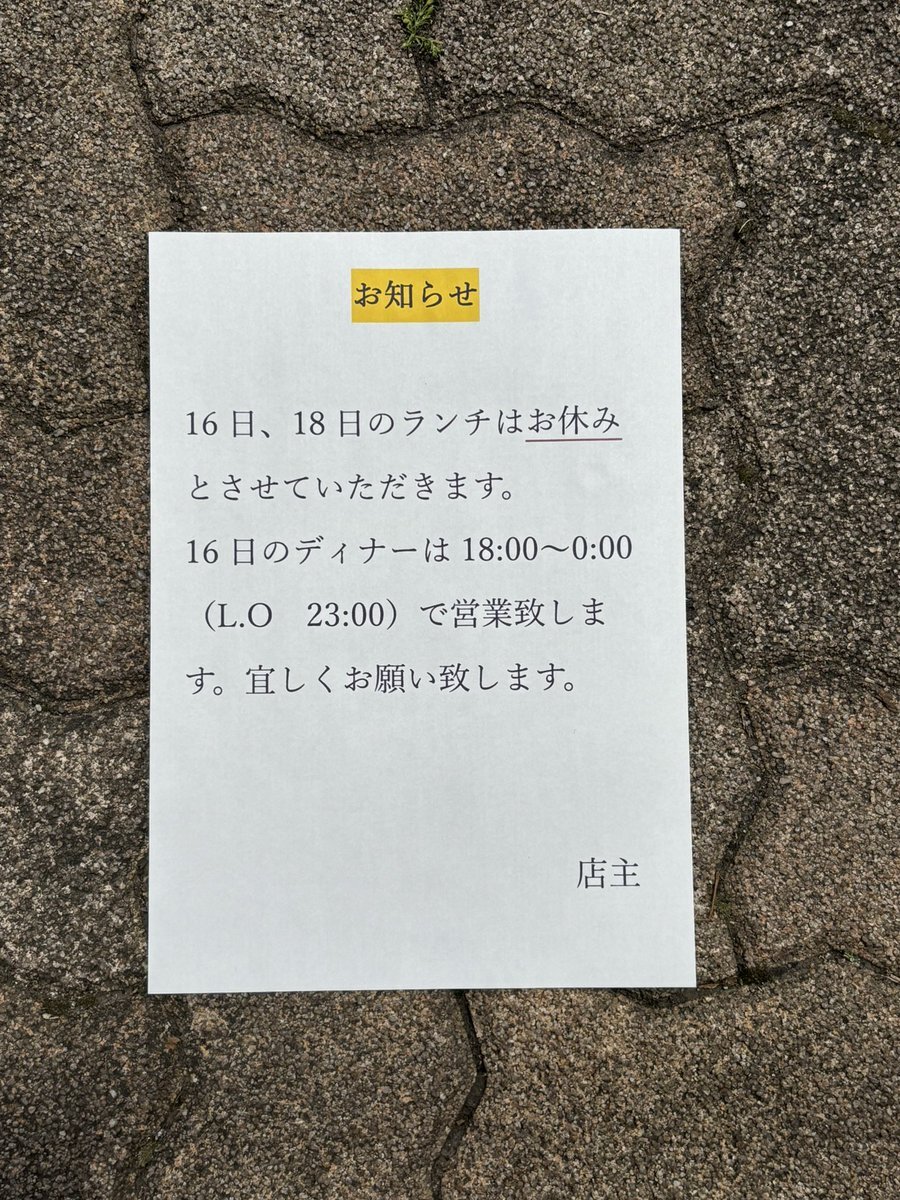 お知らせ
16日、18日のランチはお休み
とさせていただきます。
16日のディナーは18:00〜0:00
（L.O　23:00）で営業致しま
す。宜しくお願い致します。
店主